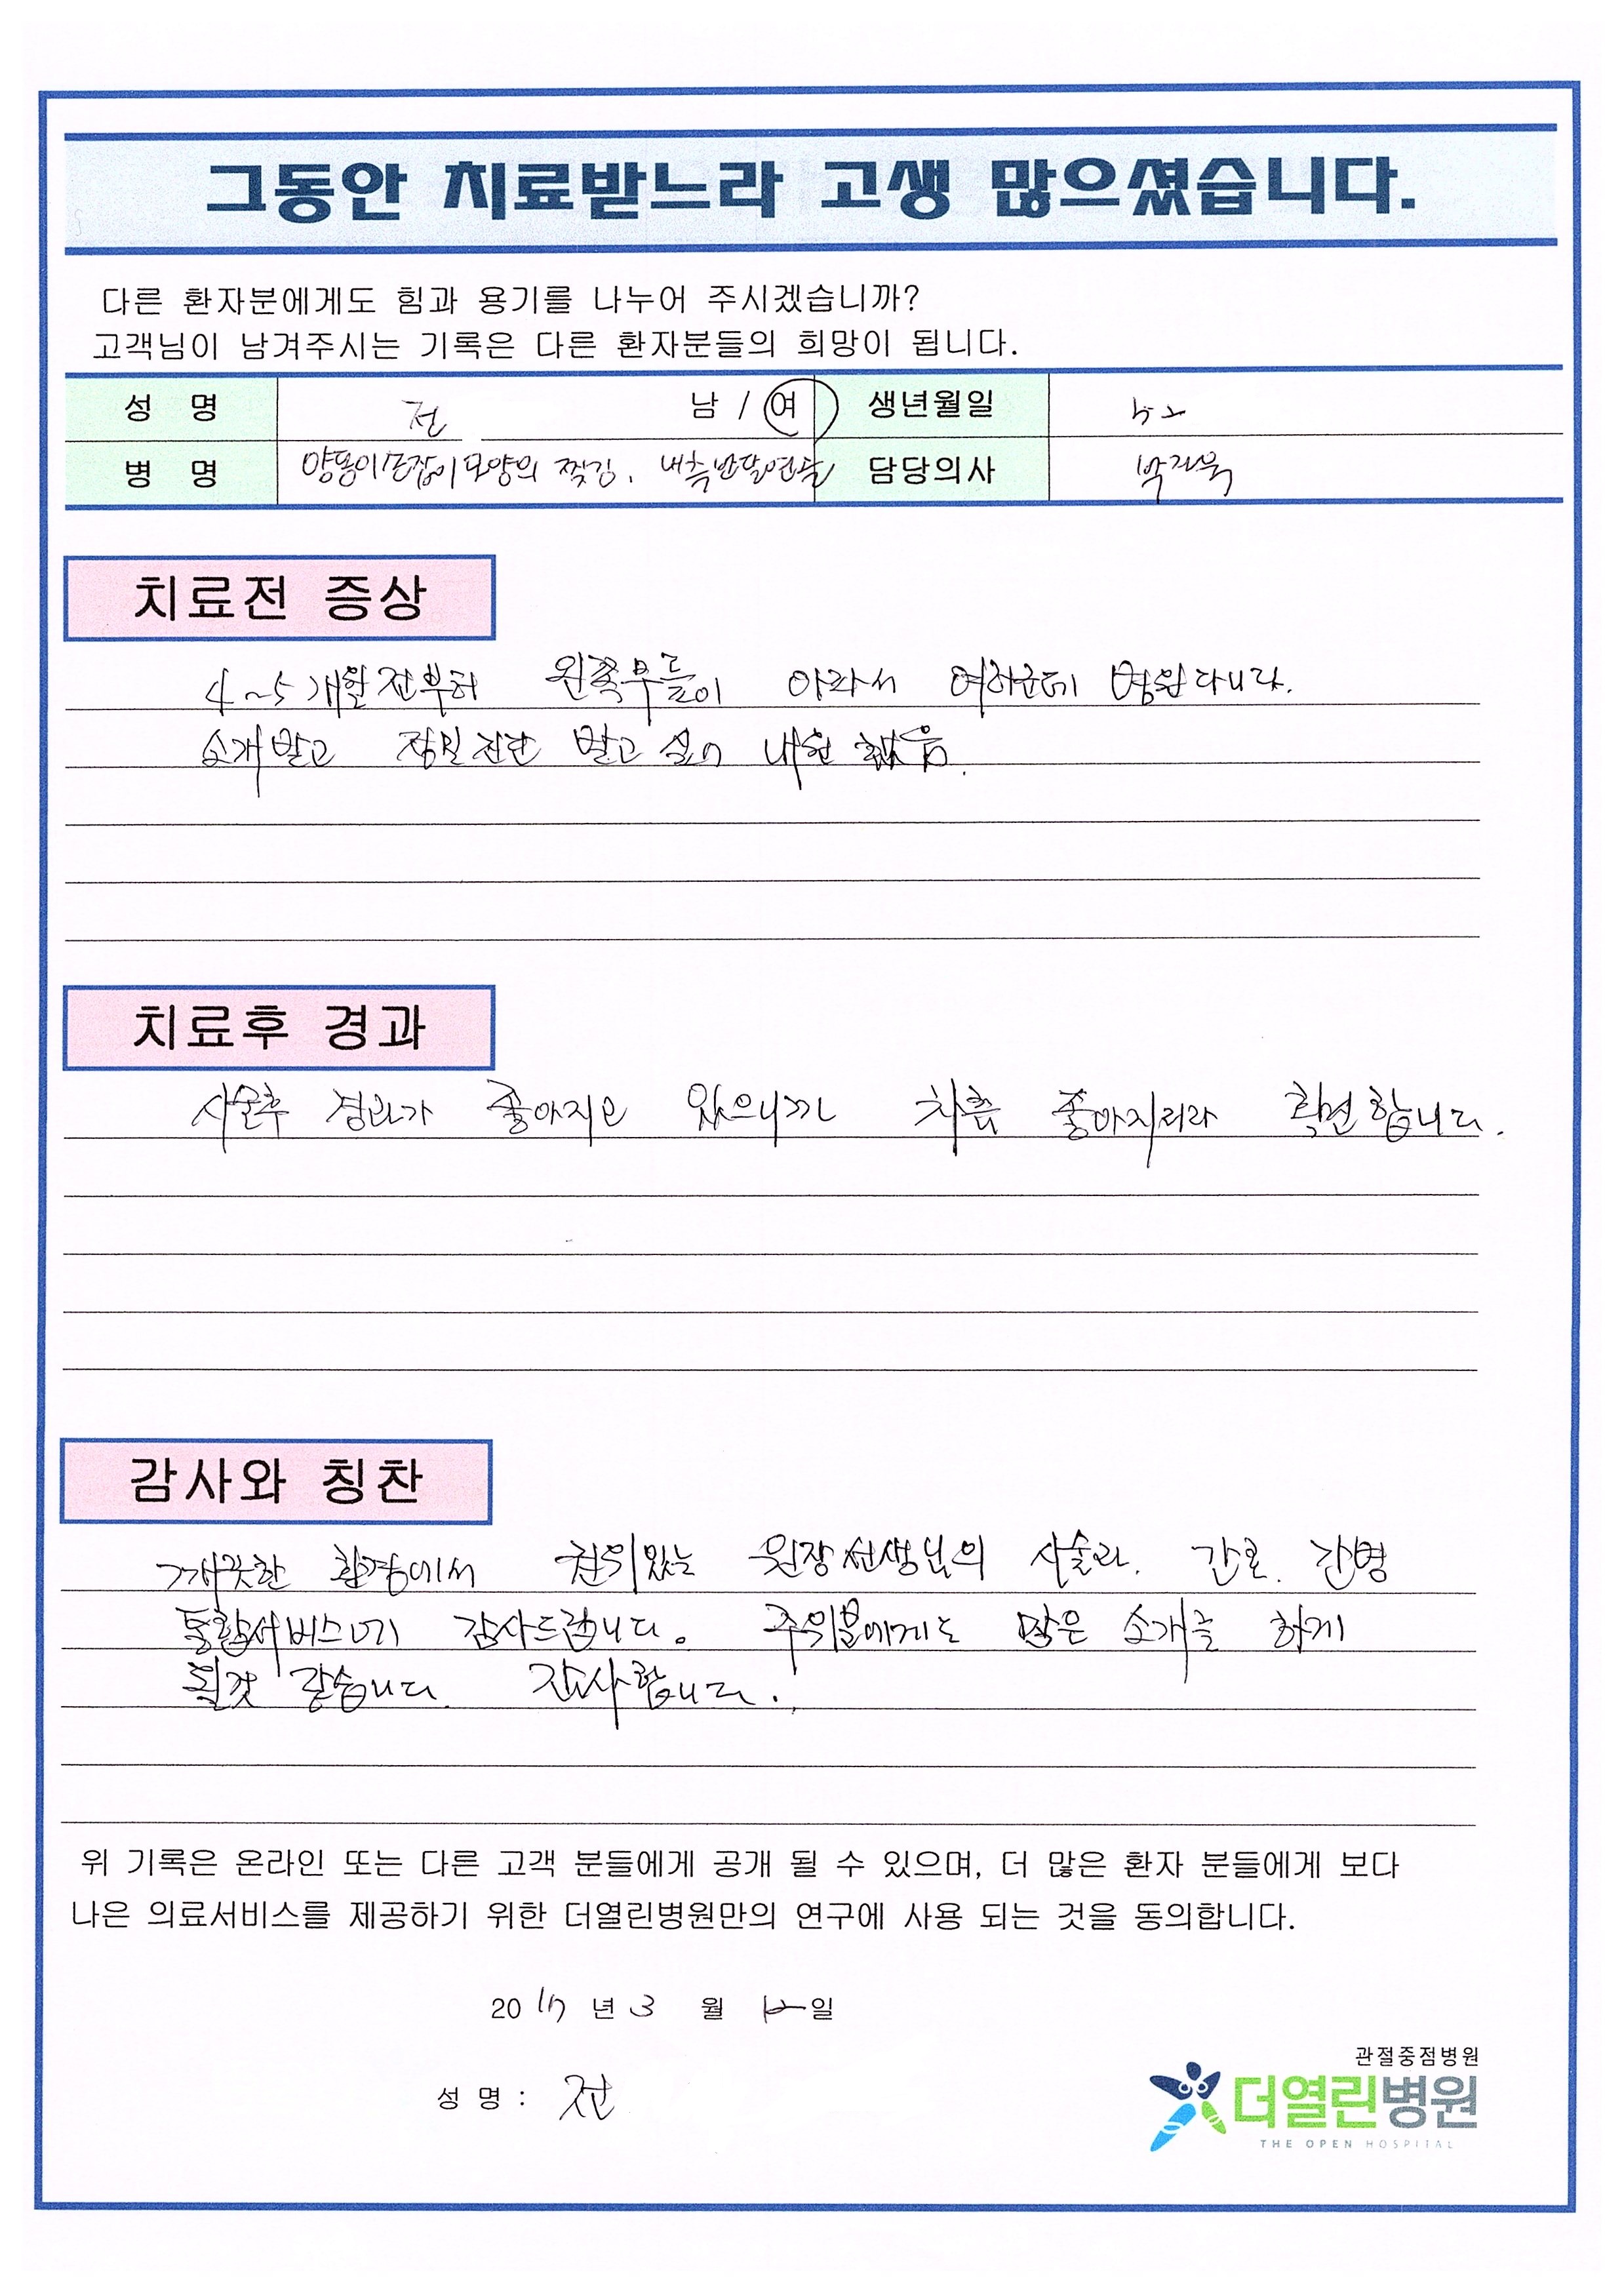 그동안 치료받느라 고생 많으셨습니다.
다른 환자분에게도 힘과 용기를 나누어 주시겠습니까?
고객님이 남겨주시는 기록은 다른 환자분들의 희망이 됩니다.
성 명 전 남 / 여 생년월일 52
병 명 양동이손잡이모양의 찢김, 내측반달연골 담당의사 박지욱
치료전 증상
4~5개월전부터 왼쪽무릎이 아파서 여러군데 병원다니다.
소개받고 정밀진단 받고 싶어 내원 했음.
치료후 경과
시술후 경과가 좋아지고 있으니까 차츰 좋아지리라 확신합니다.
감사와 칭찬
깨끗한 환경에서 권위있는 원장선생님의 시술과. 간호. 간병
통합서비스에 감사드립니다. 주위분에게도 많은 소개를 하게
될것 같습니다. 감사합니다.
위 기록은 온라인 또는 다른 고객 분들에게 공개 될 수 있으며, 더 많은 환자 분들에게 보다
나은 의료서비스를 제공하기 위한 더열린병원만의 연구에 사용 되는 것을 동의합니다.
2017년 3 월 12일
성 명 : 전
관절중점병원
더열린병원
THE OPEN HOSPITAL